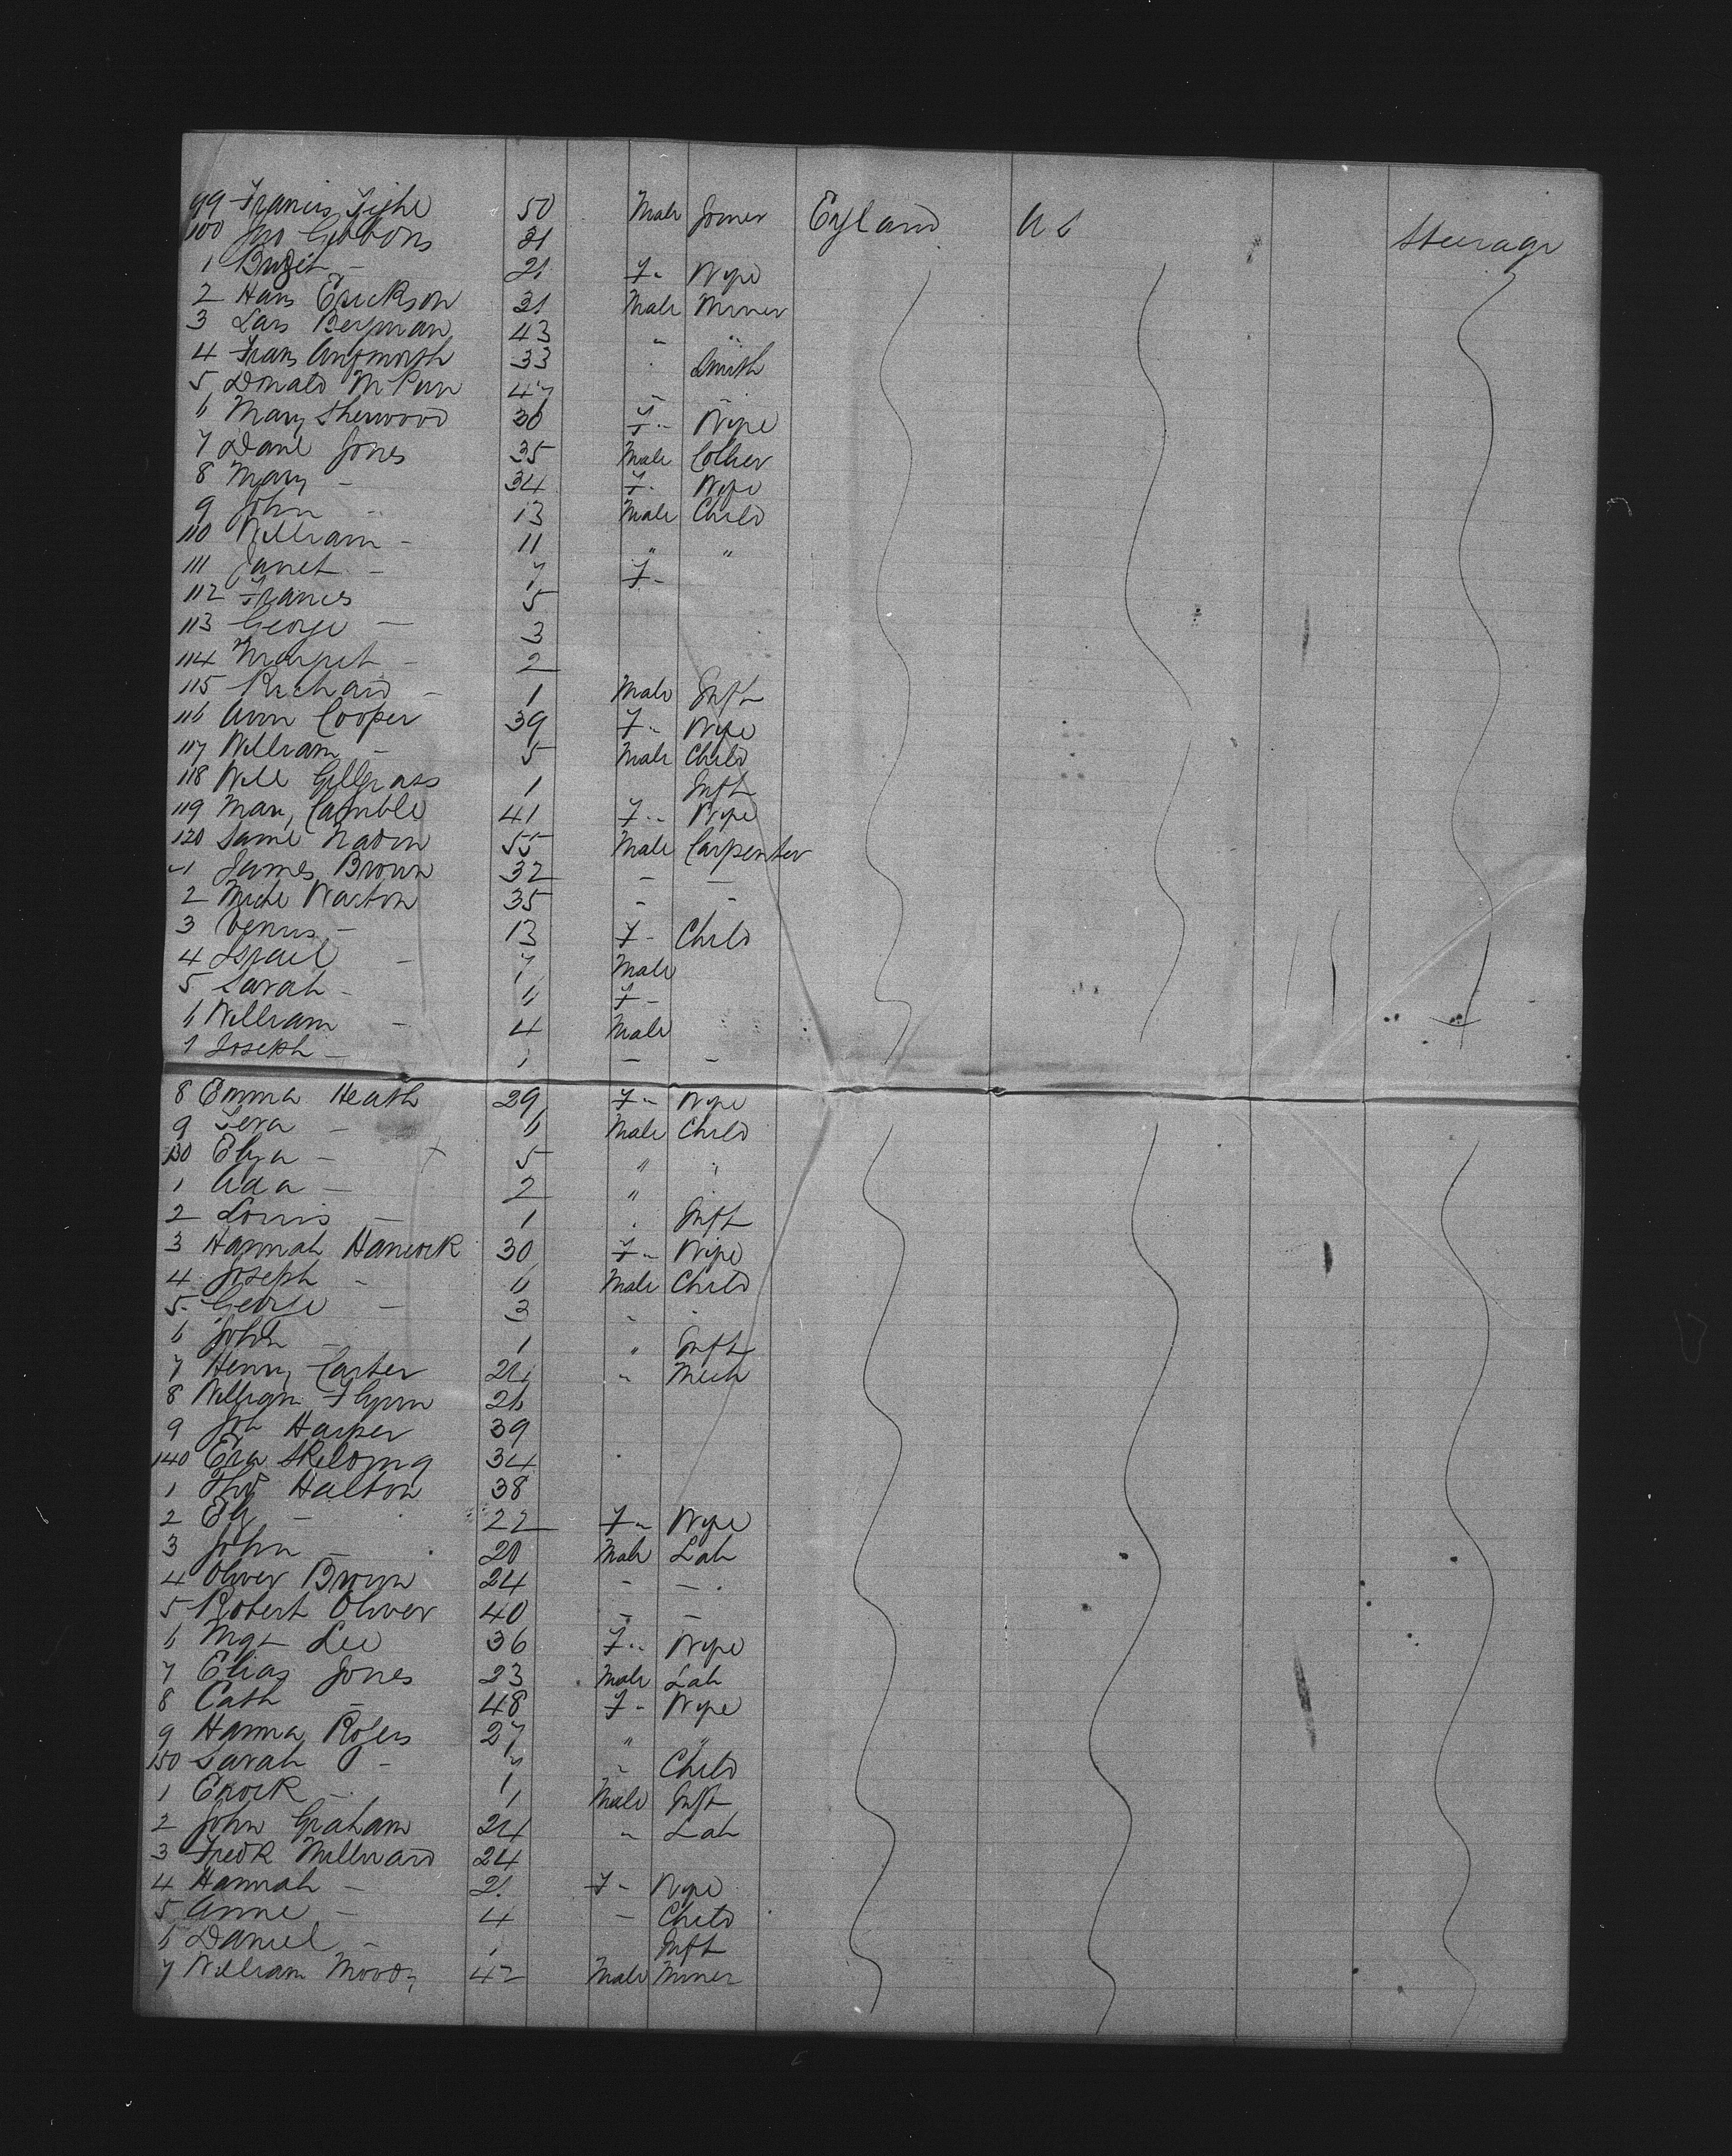 99 Francis Tighe 50 Male Joiner England U S Steerage
100 Jno Gibbons 31
1 Bridget - 21 F " Wife
2 Hans Erickson 31 Male Miner
3 Lars Bergman 43 " "
4 Frans 33 Smith
5 Donald 47 - -
6 Mary Sherwood 30 F " Wife
7 Danl Jones 35 Male Collier
8 Mary - 34 F - Wife
9 John - 13 Male Child
110 William - 11 " "
111 Janet - 7 F -
112 Frances 5
113 George - 3
114 Margret - 2
115 Richard - 1 Male Inft
116 Ann Cooper 39 F " Wife
117 William - 5 Male Child
118 Will Gillgrass 1 Inft
119 Mary Camble 41 F " Wife
120 Saml Nadin 55 Male Carpenter
1 James Brown 32 - -
2 Warton 35 - -
3 Venus - 13 F - Child
4 Israel - 7 Male
5 Sarah - 6 F -
6 William - 4 Male
7 Joseph - 1 - -
8 Emma Heath 29 F " Wife
9 - 6 Male Child
130 Eliza - 5 " "
1 Ada - 2 "
2 Louis - 1 " Inft
3 Hannah Hancock 30 F " Wife
4 Joseph - 6 Male Child
5 George - 3 "
6 John - 1 " Inft
7 Henry Carter 26 " Mech
8 William Flynn 26
9 Harper 39
140 34
1 Thos Halton 38
2 Eliz - 22 F " Wife
3 John - 20 Male Lab
4 Oliver Brown 24 - -
5 Robert Oliver 40 - -
6 Mgt Lee 36 F " Wife
7 Elias Jones 23 Male Lab
8 Cath - 48 F - Wife
9 Hanna Rogers 27 " "
150 Sarah - 7 " Child
1 Enock - 1 Male Inft
2 John Graham 24 " Lab
3 Fredk Millward 24
4 Hannah - 21 F - Wife
5 Anne - 4 - Child
6 Daniel - 1 Inft
7 William Moody 42 Male Miner